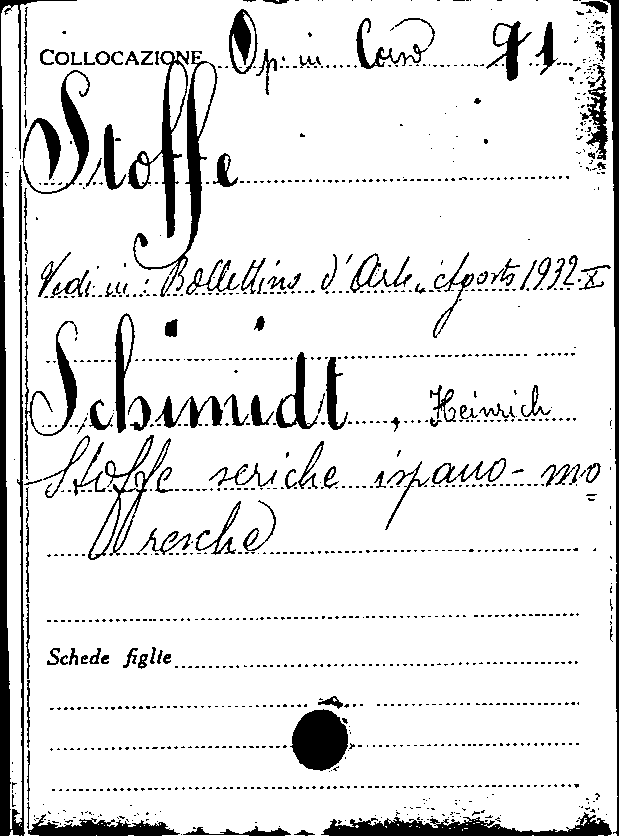 COLLOCAZIONE Op. in Corso 91
Stoffe
Vedi in: Bollettino d'Arte, Agosto 1932-X
Schimidt, Heinrich
Stoffe seriche ispano-mo
resche
Schede figlie